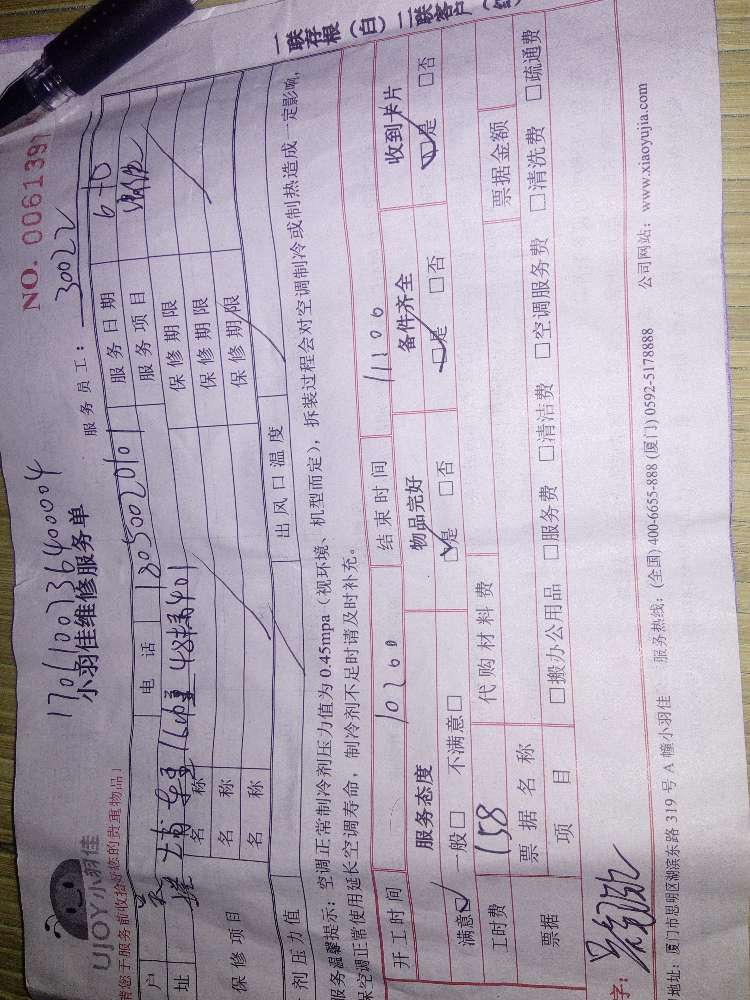 一联存根（白）二联客户（红
NO. 0061397
17061002364000 04
小羽佳维修服务单
UJOY小羽佳
请您于服务前收拾好您的贵重物品！
服务员工：30022
户
电话
13050020101
服务日期
6-10
址
48
401
服务项目
保修项目
名称
保修期限
名称
保修期限
名称
保修期限
剂压力值
出风口温度
服务温馨提示：空调正常制冷剂压力值为0.45mpa（视环境、机型而定），拆装过程会对空调制冷或制热造成一定影响，
保空调正常使用延长空调寿命，制冷剂不足时请及时补充。
开工时间
10200
结束时间
11100
服务态度
物品完好
备件齐全
收到卡片
满意□ 一般□ 不满意□
□是 □否
□是 □否
□是 □否
工时费
158
代购材料费
票据
票据名称
票据金额
项目
□搬办公用品 □服务费 □清洁费 □空调服务费 □清洗费 □疏通费
字：
地址：厦门市思明区湖滨东路 319 号 A 幢小羽佳 服务热线：(全国) 400-6655-888 (厦门) 0592-5178888 公司网站：www.xiaoyujia.com